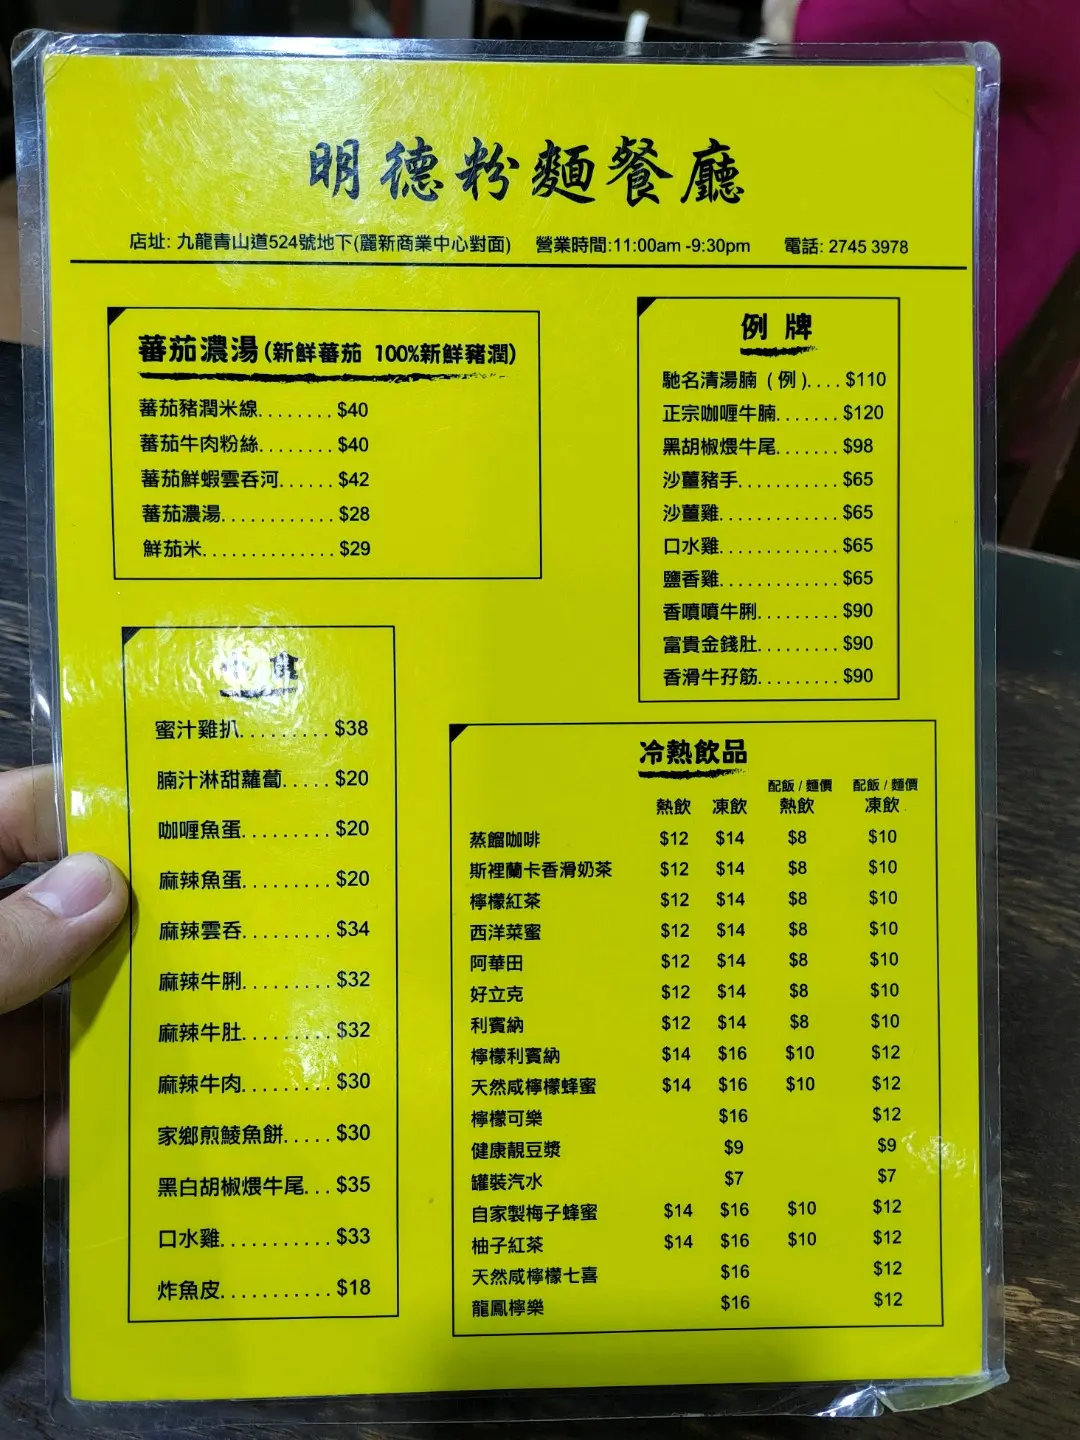 明德粉麵餐廳
店址: 九龍青山道524號地下(麗新商業中心對面) 營業時間:11:00am -9:30pm 電話: 2745 3978
蕃茄濃湯(新鮮蕃茄 100%新鮮豬潤)
蕃茄豬潤米線........$40
蕃茄牛肉粉絲........$40
蕃茄鮮蝦雲吞河......$42
蕃茄濃湯............$28
鮮茄米..............$29
例牌
馳名清湯腩 (例)....$110
正宗咖喱牛腩.......$120
黑胡椒煨牛尾.......$98
沙薑豬手...........$65
沙薑雞.............$65
口水雞.............$65
鹽香雞.............$65
香噴噴牛脷.........$90
富貴金錢肚.........$90
香滑牛孖筋.........$90
食
蜜汁雞扒.........$38
腩汁淋甜蘿蔔.....$20
咖喱魚蛋.........$20
麻辣魚蛋.........$20
麻辣雲吞.........$34
麻辣牛脷.........$32
麻辣牛肚.........$32
麻辣牛肉.........$30
家鄉煎鯪魚餅.....$30
黑白胡椒煨牛尾...$35
口水雞...........$33
炸魚皮...........$18
冷熱飲品
配飯/麵價 配飯/麵價
熱飲 凍飲 熱飲 凍飲
蒸餾咖啡 $12 $14 $8 $10
斯裡蘭卡香滑奶茶 $12 $14 $8 $10
檸檬紅茶 $12 $14 $8 $10
西洋菜蜜 $12 $14 $8 $10
阿華田 $12 $14 $8 $10
好立克 $12 $14 $8 $10
利賓納 $12 $14 $8 $10
檸檬利賓納 $14 $16 $10 $12
天然咸檸檬蜂蜜 $14 $16 $10 $12
檸檬可樂 $16 $12
健康靚豆漿 $9 $9
罐裝汽水 $7 $7
自家製梅子蜂蜜 $14 $16 $10 $12
柚子紅茶 $14 $16 $10 $12
天然咸檸檬七喜 $16 $12
龍鳳檸樂 $16 $12